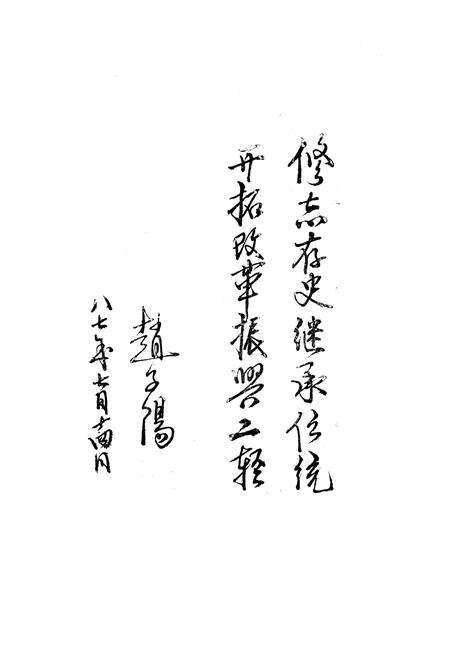 修志存史继承传统
开拓改革振興二轻
趙子陽
八七年七月十四日